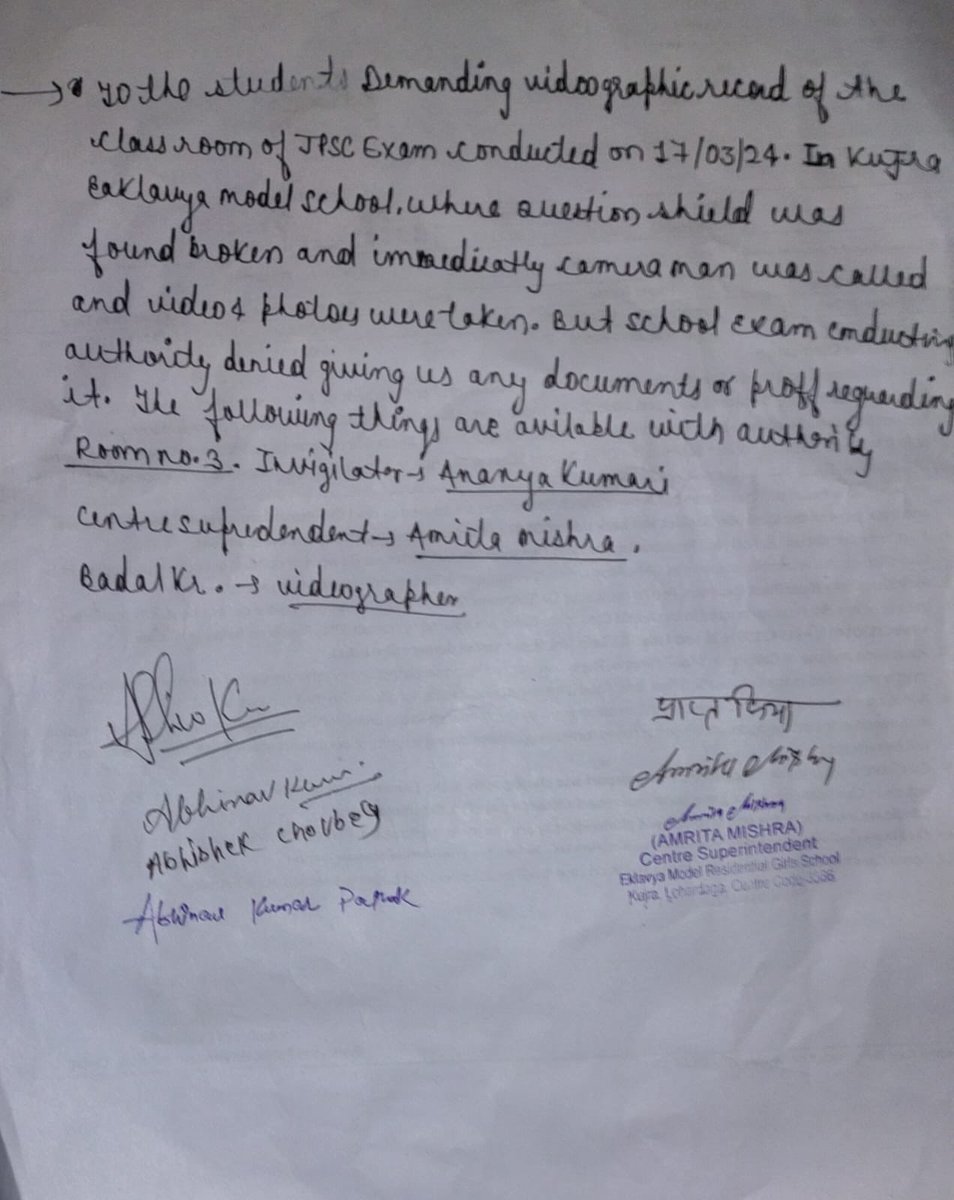 → To the students Demanding videographic record of the
Classroom of JPSC Exam conducted on 17/03/24. In Kujra
Eaklavya model school, where question shield was
found broken and immedicatly camera man was called
and videos & photos were taken. But school exam conducting
authority denied giving us any documents or proff reguarding
it. The following things are avilable with authority
Room no. 3. Invigilator → Ananya Kumari
Centre supredendent → Amita mishra.
Badal Kr. → videographer
प्राप्त किया
Amrita Mishra
Abhinav Kumar
Abhishek Choubey
Abhinav Kumar
Amrita Mishra
(AMRITA MISHRA)
Centre Superintendent
Eklavya Model Residential Girls School
Kujra, Lohardaga, Centre Code-